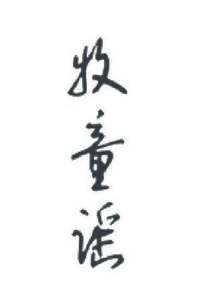 牧童谣